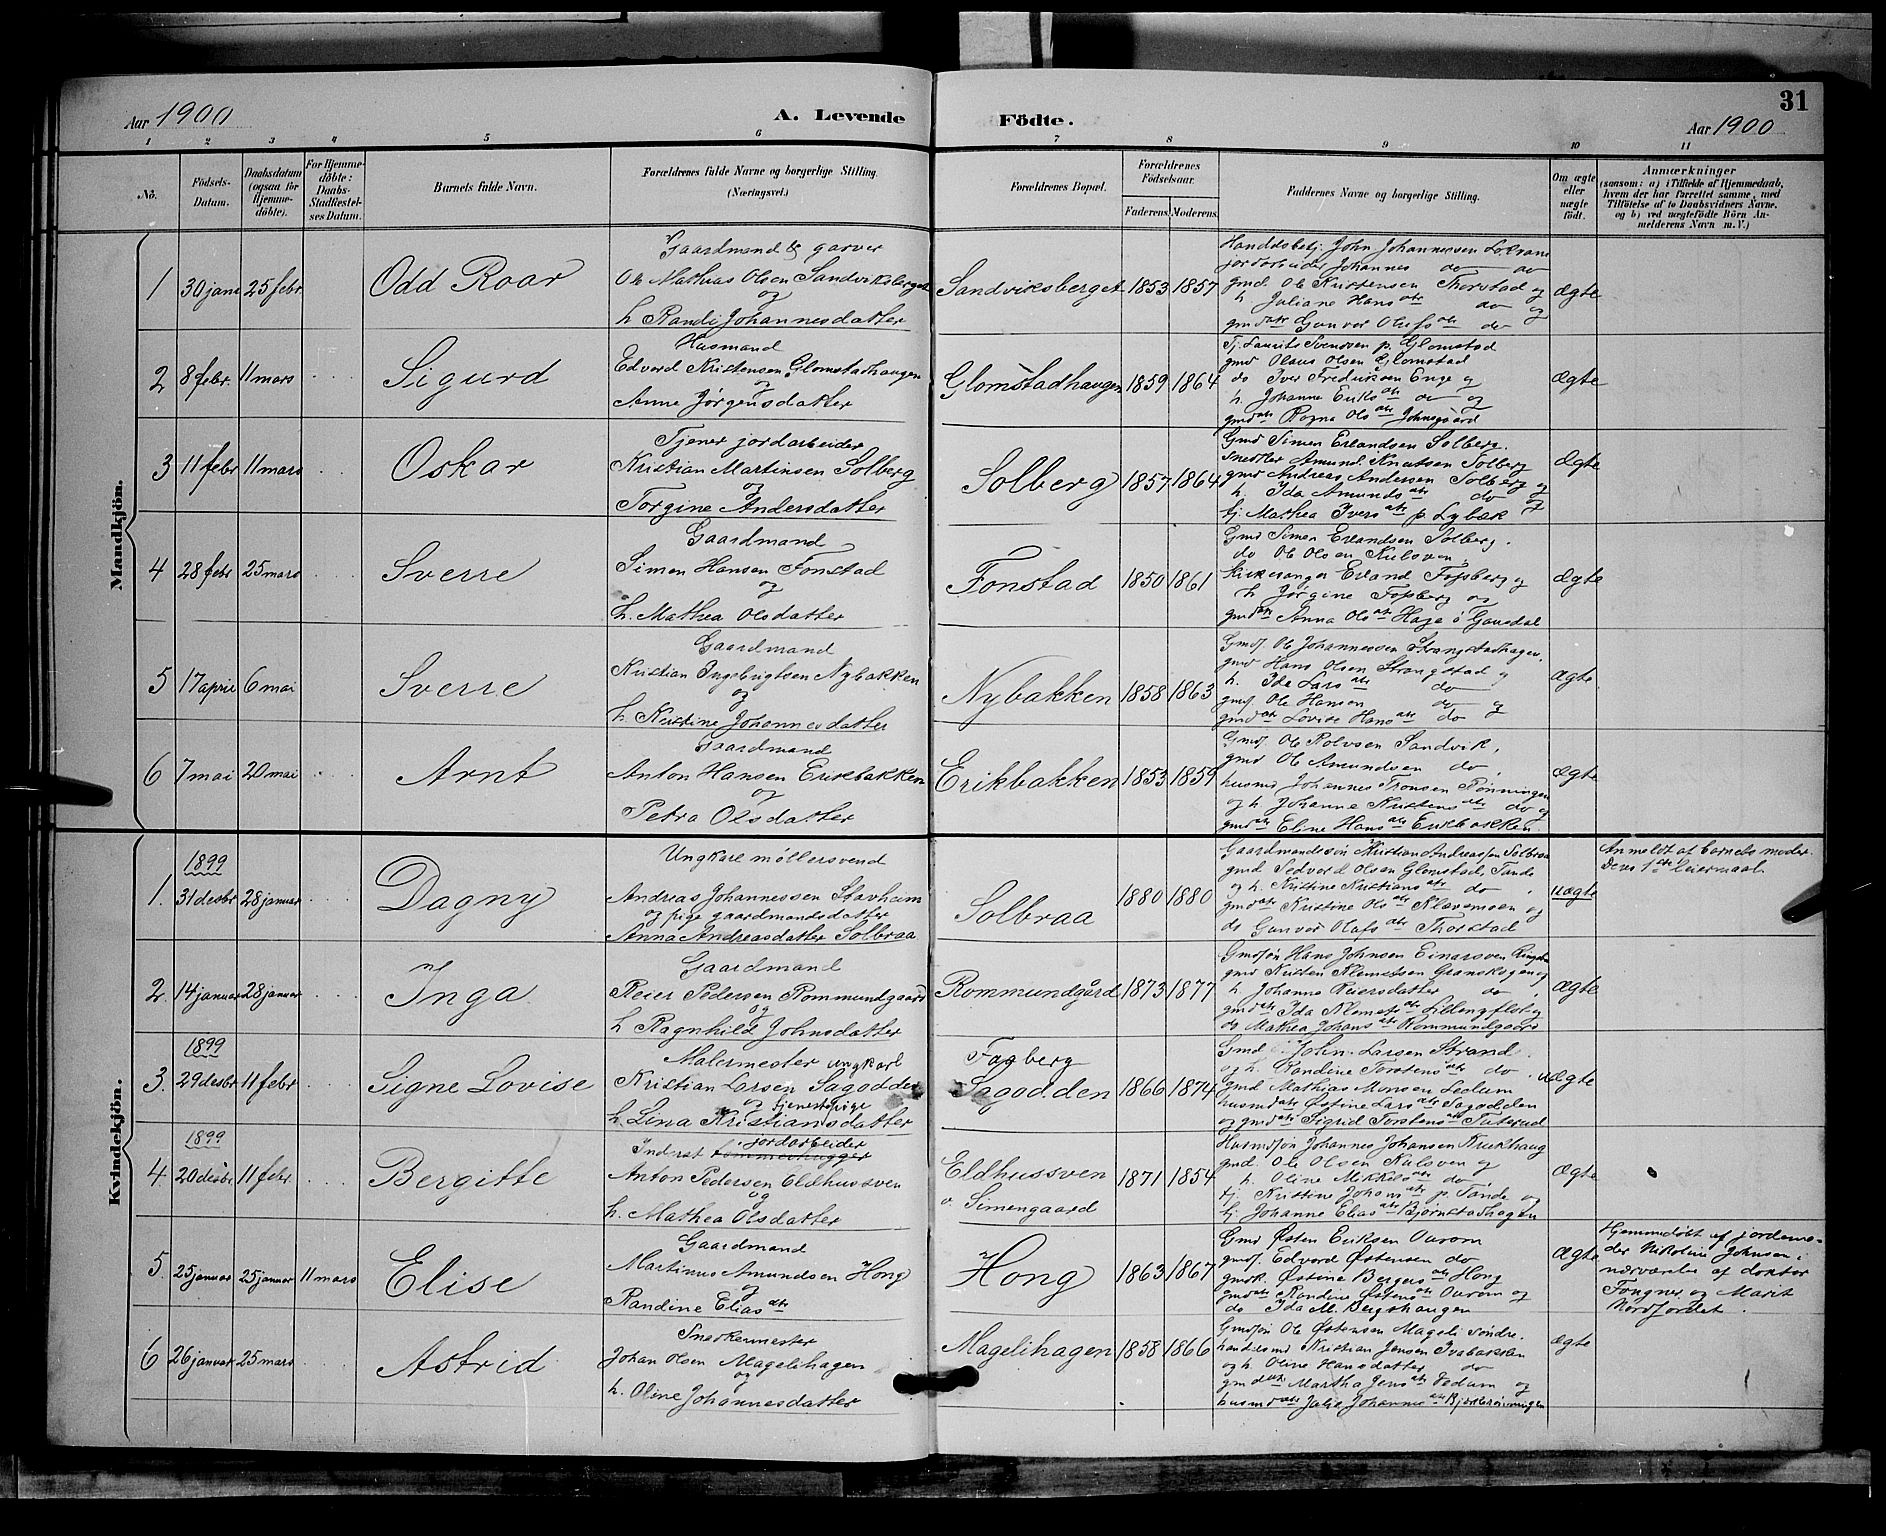 31
Aar 1900
A. Levende Födte.
Aar 1900
1 2 3 4 5 6 7 8 9 10 11
No.
Födsels-
Datum.
Daabsdatum
(ogsaa for
Hjemme-
döbte).
For Hjemme-
döbte:
Daabs-
Stadfæstel-
ses Datum.
Barnets fulde Navn.
Forældrenes fulde Navne og borgerlige Stilling.
(Næringsvei.)
Forældrenes Bopæl.
Forældrenes
Födselsaar.
Faderens. Moderens.
Faddernes Navne og borgerlige Stilling.
Om ægte
eller
uægte
födt.
Anmærkninger
(saasom: a) i Tilfælde af Hjemmedaab,
hvem der har forrettet samme, med
Tilföielse af to Daabsvidners Navne,
og b) ved uægtefödte Börn An-
melderens Navn m. V.)
Mandkjön.
1 30 janr 25 febr Odd Roar
Gaardmand & garver
Ole Mathias Olsen Sandviksberget
og
h. Randi Johannesdatter
Sandviksberget 1853 1857
John Johannessen
jordarbeider Johannes do
gmd. Ole Kristensen Thorstad og
h. Juliane Hansdtr do og
gmddtr Gunvor Olufsdtr do
ægte
2 8 febr. 11 mars Sigurd
Husmand
Edvard Kristensen Glomstadhaugen
og
Anne Jørgensdatter
Glomstadhaugen 1859 1864
Tj. Laurits Svendsen p. Glomstad
gmd Olaus Olsen Glomstad
do Iver Fredriksen Enge og
h. Johanne Eriksdtr do og
gmddtr Ragna Olsdtr Johnsgaard
ægte
3 11 febr 11 mars Oskar
Tjener jordarbeider
Kristian Martinsen Solberg
og
Torgine Andersdatter
Solberg 1857 1864
Gmd Simen Erlandsen Solberg.
snedker Amund Knutsen Solberg
gmd Andreas Andersen Solberg og
h. Ida Amundsdtr do og
tj. Mathea Iversdtr p. Lybæk
ægte
4 28 febr 25 mars Sverre
Gaardmand
Simen Hansen Fonstad
og
h. Mathea Olsdatter
Fonstad 1850 1861
Gmd Simen Erlandsen Solberg.
do Ole Olsen Kulsven
Kirkesanger Erland Fosberg og
h. Jørgine Fosberg og
gmddtr Anna Olsdtr Hage i Gausdal
ægte
5 17 april 6 mai Sverre
Gaardmand
Kristian Ingebrigtsen Nybakken
og
h. Kristine Johannesdatter
Nybakken 1858 1863
Gmdf. Ole Johannessen Strangstadhagen,
gmd Hans Olsen Strangstad og
h. Ida Larsdtr do
gmdf Ole Hansen do og
gmddtr Lovise Hansdtr do
ægte
6 7 mai 20 mai Arnt
Gaardmand
Anton Hansen Erikbakken
og
Petra Olsdatter
Erikbakken 1853 1859
Gmdf. Ole Rolvsen Sandvik,
gmd Ole Amundsen do,
husmd Johannes Tronsen Rønningen
og h. Johanne Kristensdtr do og
gmddtr Eline Hansdtr Erikbakken.
ægte
Kvindekjön.
1899
1. 31 desbr 28 januar Dagny
Ungkarl møllersvend
Andreas Johannessen Stavheim
og pige gaardmandsdatter
Anna Andreasdatter Solbraa
Solbraa 1880 1880
Gaardmandssøn Kristian Andreassen Solbraa
gmd Sedvard Olsen Glomstad, Tande
og h. Kristine Kristiansdtr do
gmddtr Kristine Olsdtr Kløvemoen og
do Gunvor Olafsdtr Thorstad
uægte
Anmeldt af barnets moder.
Deres 1ste leiermaal.
2. 14 januar 28 januar Inga
Gaardmand
Reier Pedersen Rommundgaard
og
h. Ragnhild Johnsdatter
Rommundgård 1873 1877
Gmdsøn Hans Johnsen Einarsven
gmd Kristen Klemetsen Granskogen og
h. Johanne Reiersdatter do,
gmddtr Ida Klemetsdtr Liltengflot og
do Mathea Johansdtr Rommundgaard
ægte
1899
3. 29 desbr 11 febr Signe Lovise
Malermester ungkarl
Kristian Larsen Sagodden
og tjenestepige
h. Lina Kristiansdatter
Faaberg
Sagodden 1866 1874
Gmd John Larsen Strand
og h. Randine Torstensdtr do
gmd Mathias Monsen Ledum
husmddtr Østine Larsdtr Sagodden
og gmddtr Sigrid Torstensdtr Suterud
uægte
1899
4 20 desbr. 11 febr. Bergitte
Inderst tømmerhugger jordarbeider
Anton Pedersen Eldhussven
og
h. Mathea Olsdatter
Eldhussven
v. Simengaard 1871 1854
Husmdsøn Johannes Johansen Krukhaug
gmd. Ole Olsen Kulsven og
h. Oline Mikkelsdtr do.
tj. Kristine Johansdtr p. Tande og
tj. Johanne Eliasdtr Bjørnstadhagen
ægte
5. 25 januar 25 januar 11 mars Elise
Gaardmand
Martinus Amundsen Hong
og
Randine Eliasdtr
Hong 1863 1867
Gmd Østen Eriksen Aurom
gmdf. Edvard Østensen do
gmdk. Østine Bergersdtr Hong
gmddtr Randine Østensdtr Aurom og
do Ida M. Bergshaugen
ægte
Hjemmedøbt af jordemo-
der Nikoline Johnsen i
nærværelse af doktor
Fougner og Marit
Nordjordet.
6 26 januar 25 mars Astrid
Snedkermester
Johan Olsen Magelihagen
og
h. Oline Johannesdatter
Magelihagen 1858 1866
Gmdsøn Ole Østensen Mageli søndre.
Kristian Jensen Ivabakken
og h. Oline Hansdatter do
gmddtr Martha Jensdtr Ledum og
husmddtr Julie Johannesdtr
ægte